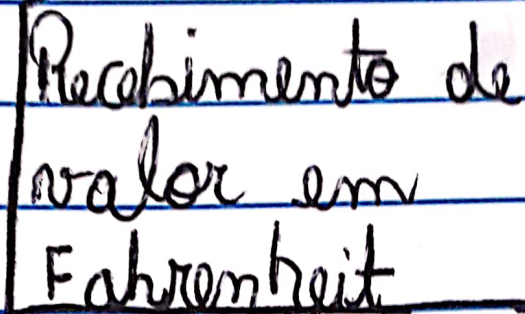 Recebimento de
valor em
Fahrenheit